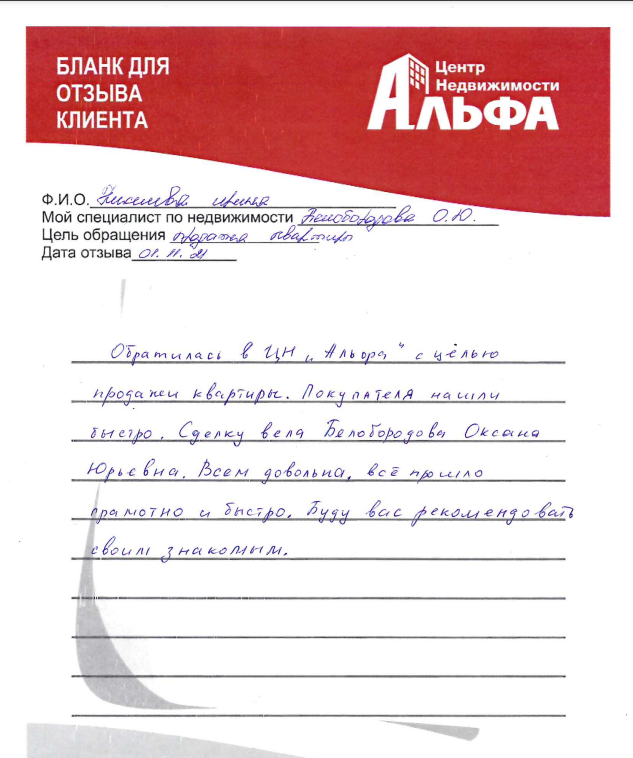 БЛАНК ДЛЯ
ОТЗЫВА
КЛИЕНТА
Центр
Недвижимости
АЛЬФА
Ф.И.О. ирина
Мой специалист по недвижимости Белобородова О.Ю.
Цель обращения продажа квартиры
Дата отзыва 01.11.21
Обратилась в ЦН „Альфа" с целью
продажи квартиры. Покупателя нашли
быстро. Сделку вела Белобородова Оксана
Юрьевна. Всем довольна, всё прошло
грамотно и быстро. Буду вас рекомендовать
своим знакомым.